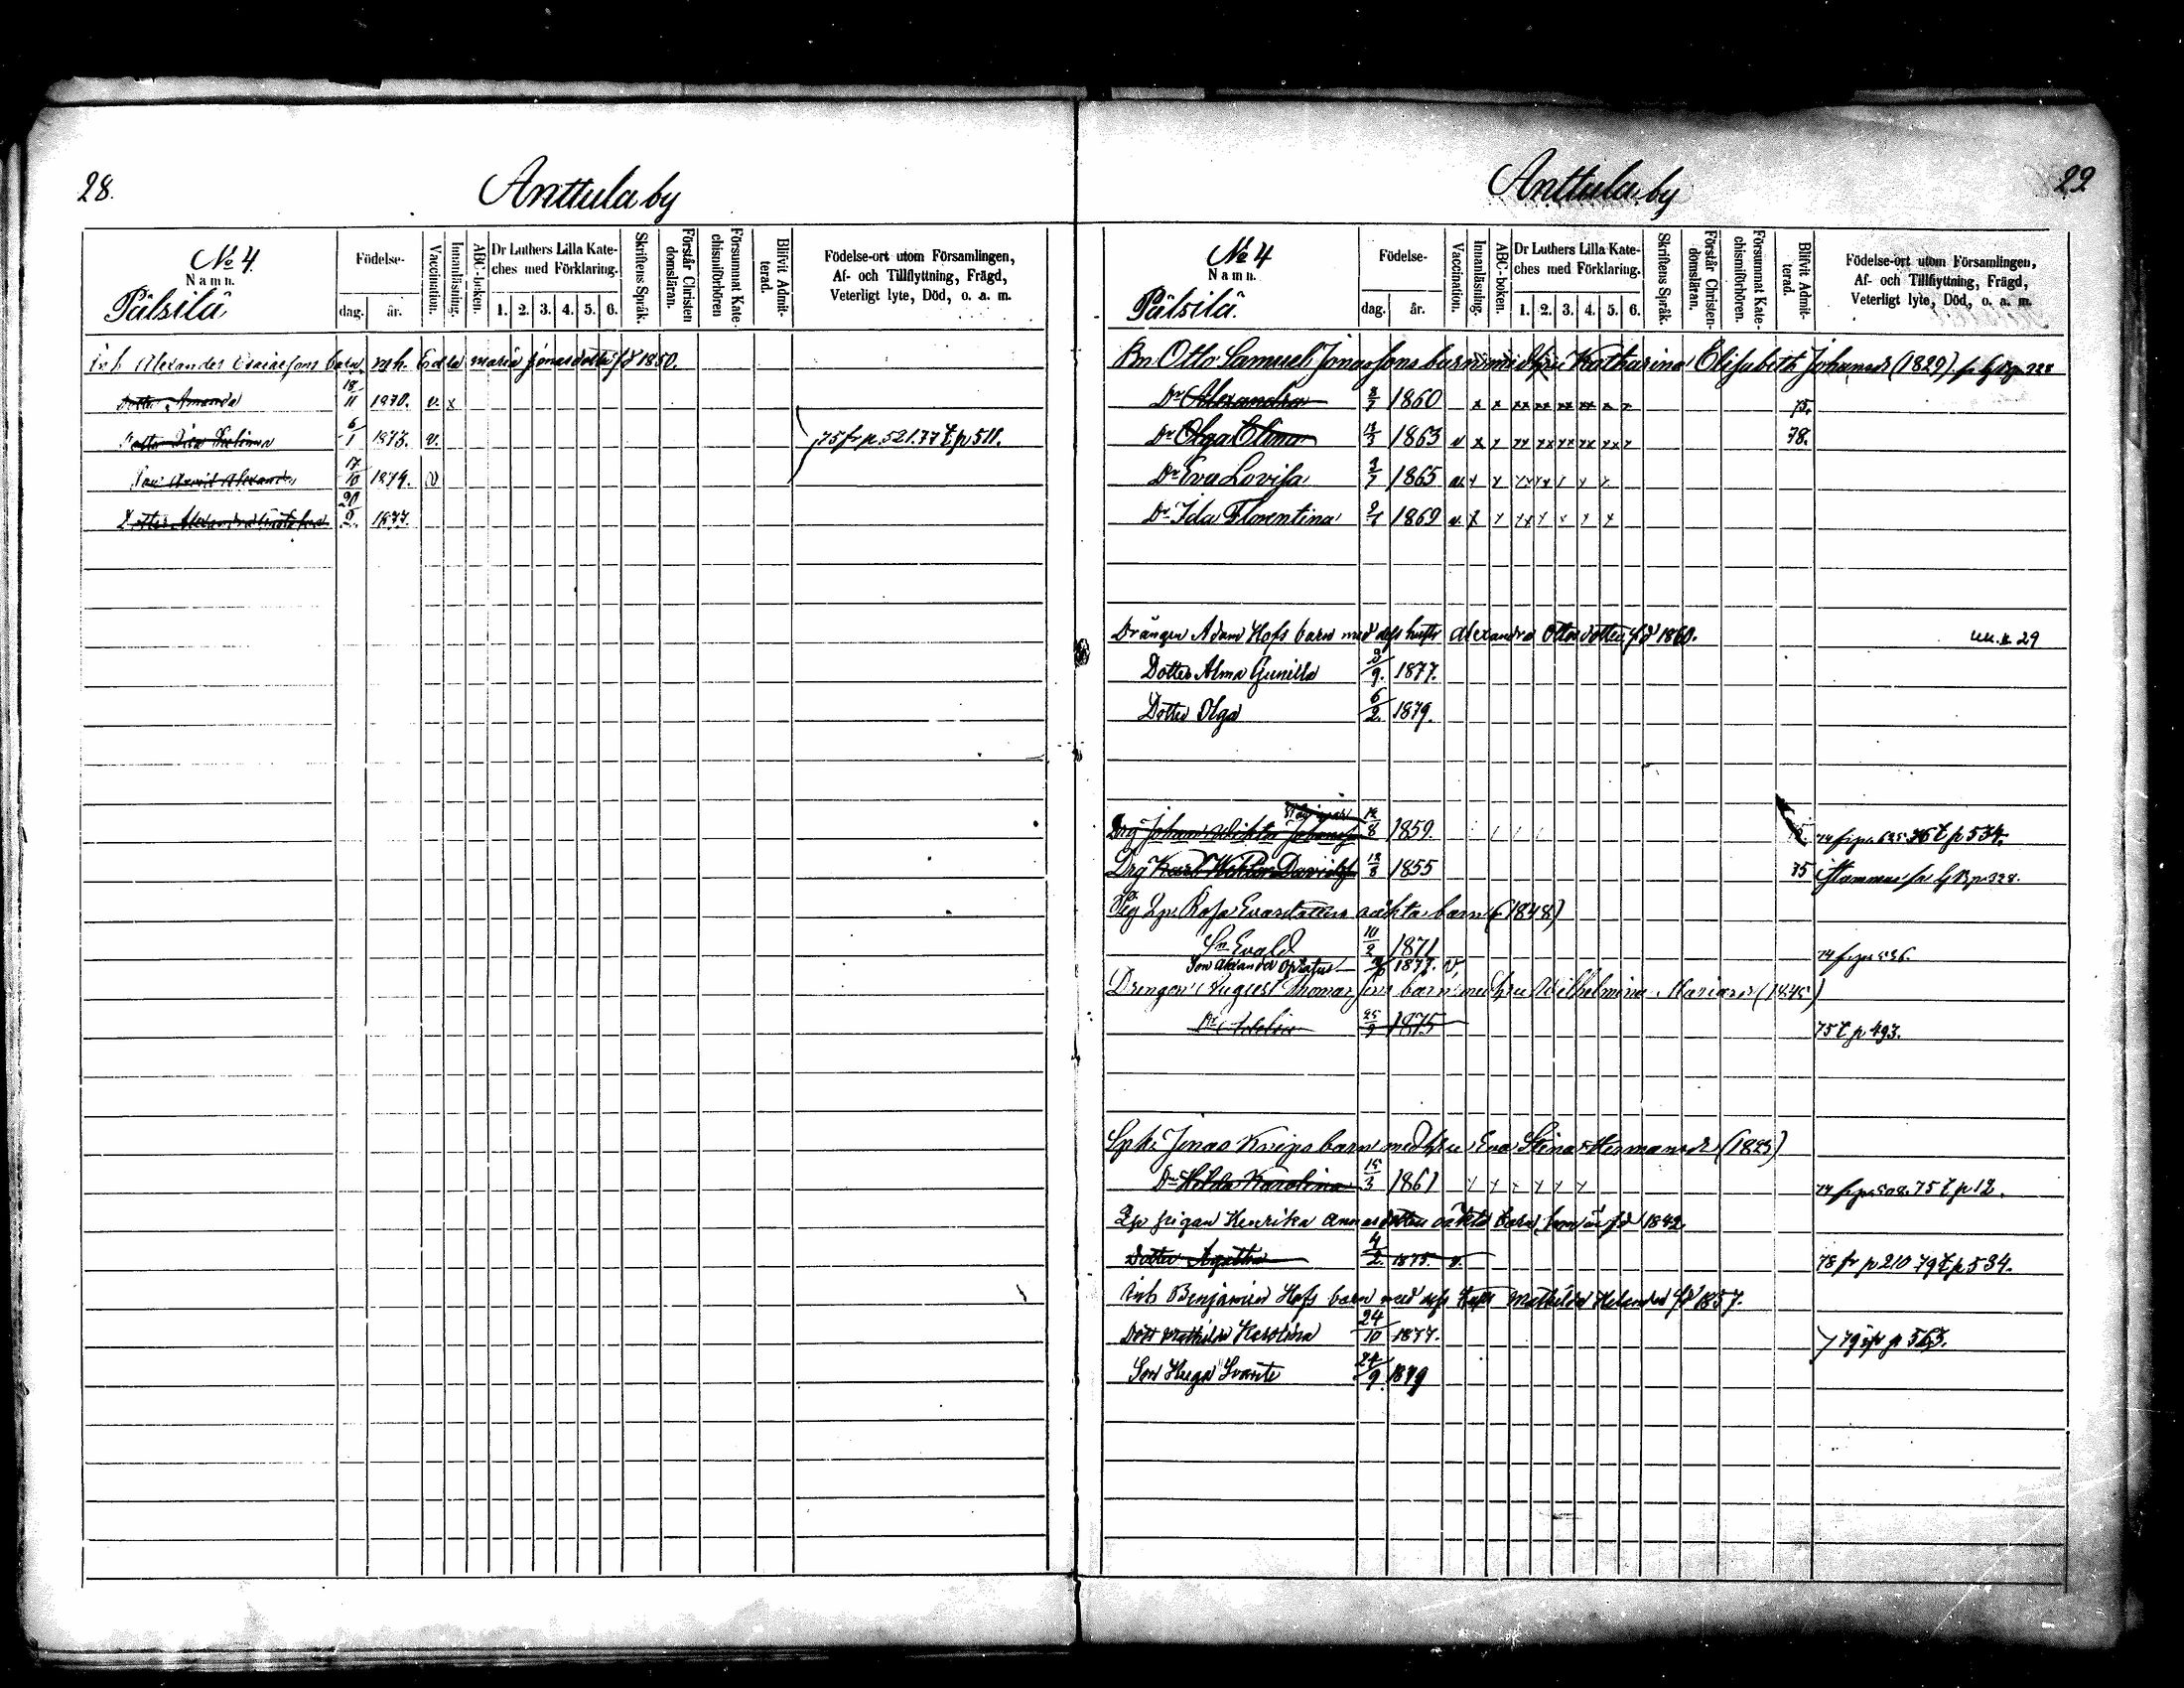 28.
Anttula by
No 4.
Namn.
Pälsilä
Födelse-
dag.
år.
Vaccination.
Innanläsning.
ABC-boken.
Dr Luthers Lilla Kate-
ches med Förklaring.
1. 2. 3. 4. 5. 6.
Skriftens Språk.
Förstår Christen
domsläran.
Försummat Kate-
chismiförhören
Blifvit Admit-
terad.
Födelse-ort utom Församlingen,
Af- och Tillflyttning, Frägd,
Veterligt lyte, Död, o. a. m.
Inh Alexander Esaiassons barn m h. Edla Maria Jonasdotter fd 1850.
Dotter Amanda 18/11 1870. v. x
Dotter Ida 6/1 1873. v. 75 fr p. 521. 77 t p 511.
Son Alexander 17/10 1874. v
Dotter Alexandra 20/2. 1877.
29
Anttula by
No 4
Namn.
Pälsilä.
Födelse-
dag.
år.
Vaccination.
Innanläsning.
ABC-boken.
Dr Luthers Lilla Kate-
ches med Förklaring.
1. 2. 3. 4. 5. 6.
Skriftens Språk.
Förstår Christen-
domsläran.
Försummat Kate-
chismiförhören.
Blifvit Admit-
terad.
Födelse-ort utom Församlingen,
Af- och Tillflyttning, Frägd,
Veterligt lyte, Död, o. a. m.
Bn Otto Samuel Jonassons barn med hu Katharina Elisabeth Johansdr (1829). fr p 328
Dr Alexandra 1860 x x xx xx xx xx x x 75.
Dr Olga Elina 13/3 1863 v x x xx xx xx xx xx x 78.
Dr Eva Lovisa 1865 v x x xx xx x x x
Dr Ida Florentina 1869 v x x xx x x x x
Drängen Adam Hofs barn med dess hustr Alexandra Ottosdotter fd 1860. 29
Dotter Alma Gunilla 3/9. 1877.
Dotter Olga 6/2. 1879.
Drg Johan Viktor Johansson 1859. 74 fr p. 635 76 t p 534.
Drg Karl Viktor Davidsson 12/8 1855 75 p. 328.
Pig Lp. Rosa Evasdotters oäkta barn (f 1848)
Sn Evald 10/2 1871 74 fr p 536.
Son Alexander Optatus 1877. v,
Drengen August Thomassons barn med hu Wilhelmina Mariasdr (1845)
Dr Adelia 25/9 1875 75 t p 493.
Spm Jonas Knips barn med hu Eva Stina Hermansdr (1823)
Dr Hilda Karolina 15/3 1861 x x x x x x 74 fr p 508. 75 t p 12.
Lp pigan Henrika Annasdotters oäkta barn, hon är fd 1842
Dotter Agatha 4/2. 1875. v. 78 fr p 210 79 t p 534.
Inh Benjamin Hofs barn med dess hustr Mathilda Helander fd 1857.
Dott Mathilda Karolina 24/10 1877. 79 fr p 563.
Son Hugo Svante 24/9. 1879